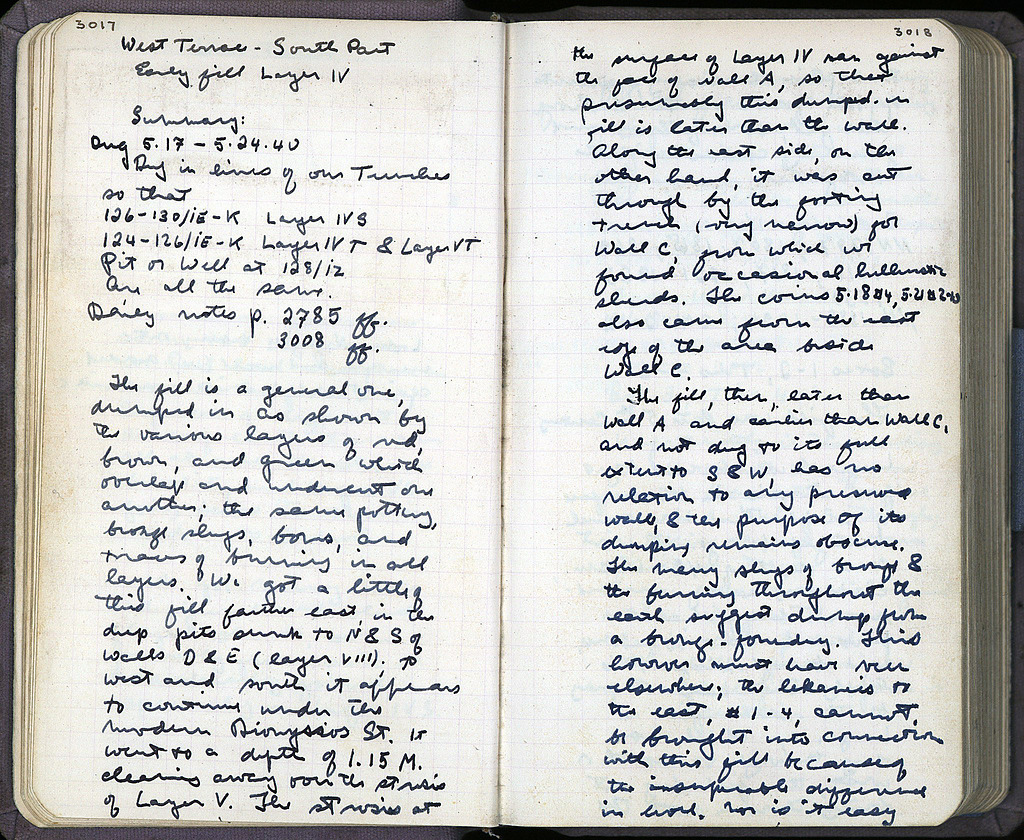 3017
West Terrace - South Part
Early fill Layer IV
Summary:
Dug 5.17 - 5.24.40
Dug in lines of our Trenches
so that
126-130/IE-K Layer IV S
124-126/IE-K Layer IV T & Layer V T
Pit or Well at 128/IZ
are all the same.
Daily notes p. 2785 ff.
3008 ff.
The fill is a general one,
dumped in as shown by
the various layers of red,
brown, and green which
overlap and undercut one
another; the same pottery,
bronze slugs, bones, and
traces of burning in all
layers. We got a little of
this fill farther east, in the
deep pits sunk to N & S of
Walls D & E (layer VIII). To
west and south it appears
to continue under the
modern Dionysios St. It
went to a depth of 1.15 M.
clearing away over the strosis
of Layer V. The strosis at
3018
the surface of Layer IV ran against
the face of wall A, so that
presumably this dumped-in
fill is later than the wall.
Along the east side, on the
other hand, it was cut
through by the footing
trench (very narrow) for
Wall C, from which we
found occasional hellenistic
sherds. The coins 5.18 #4, 5.21 #2
also came from the east
edge of the area beside
Wall C.
The fill, then, later than
Wall A and earlier than Wall C,
and not dug to its full
extent to S & W, has no
relation to any preserved
wall, & the purpose of its
dumping remains obscure.
The many slugs of bronze &
the burning throughout the
earth suggest dump from
a bronze-foundry. This
however must have been
elsewhere; the lekaneis to
the east, #1-4, cannot
be brought into connection
with this fill because of
the insuperable difference
in level. Nor is it easy